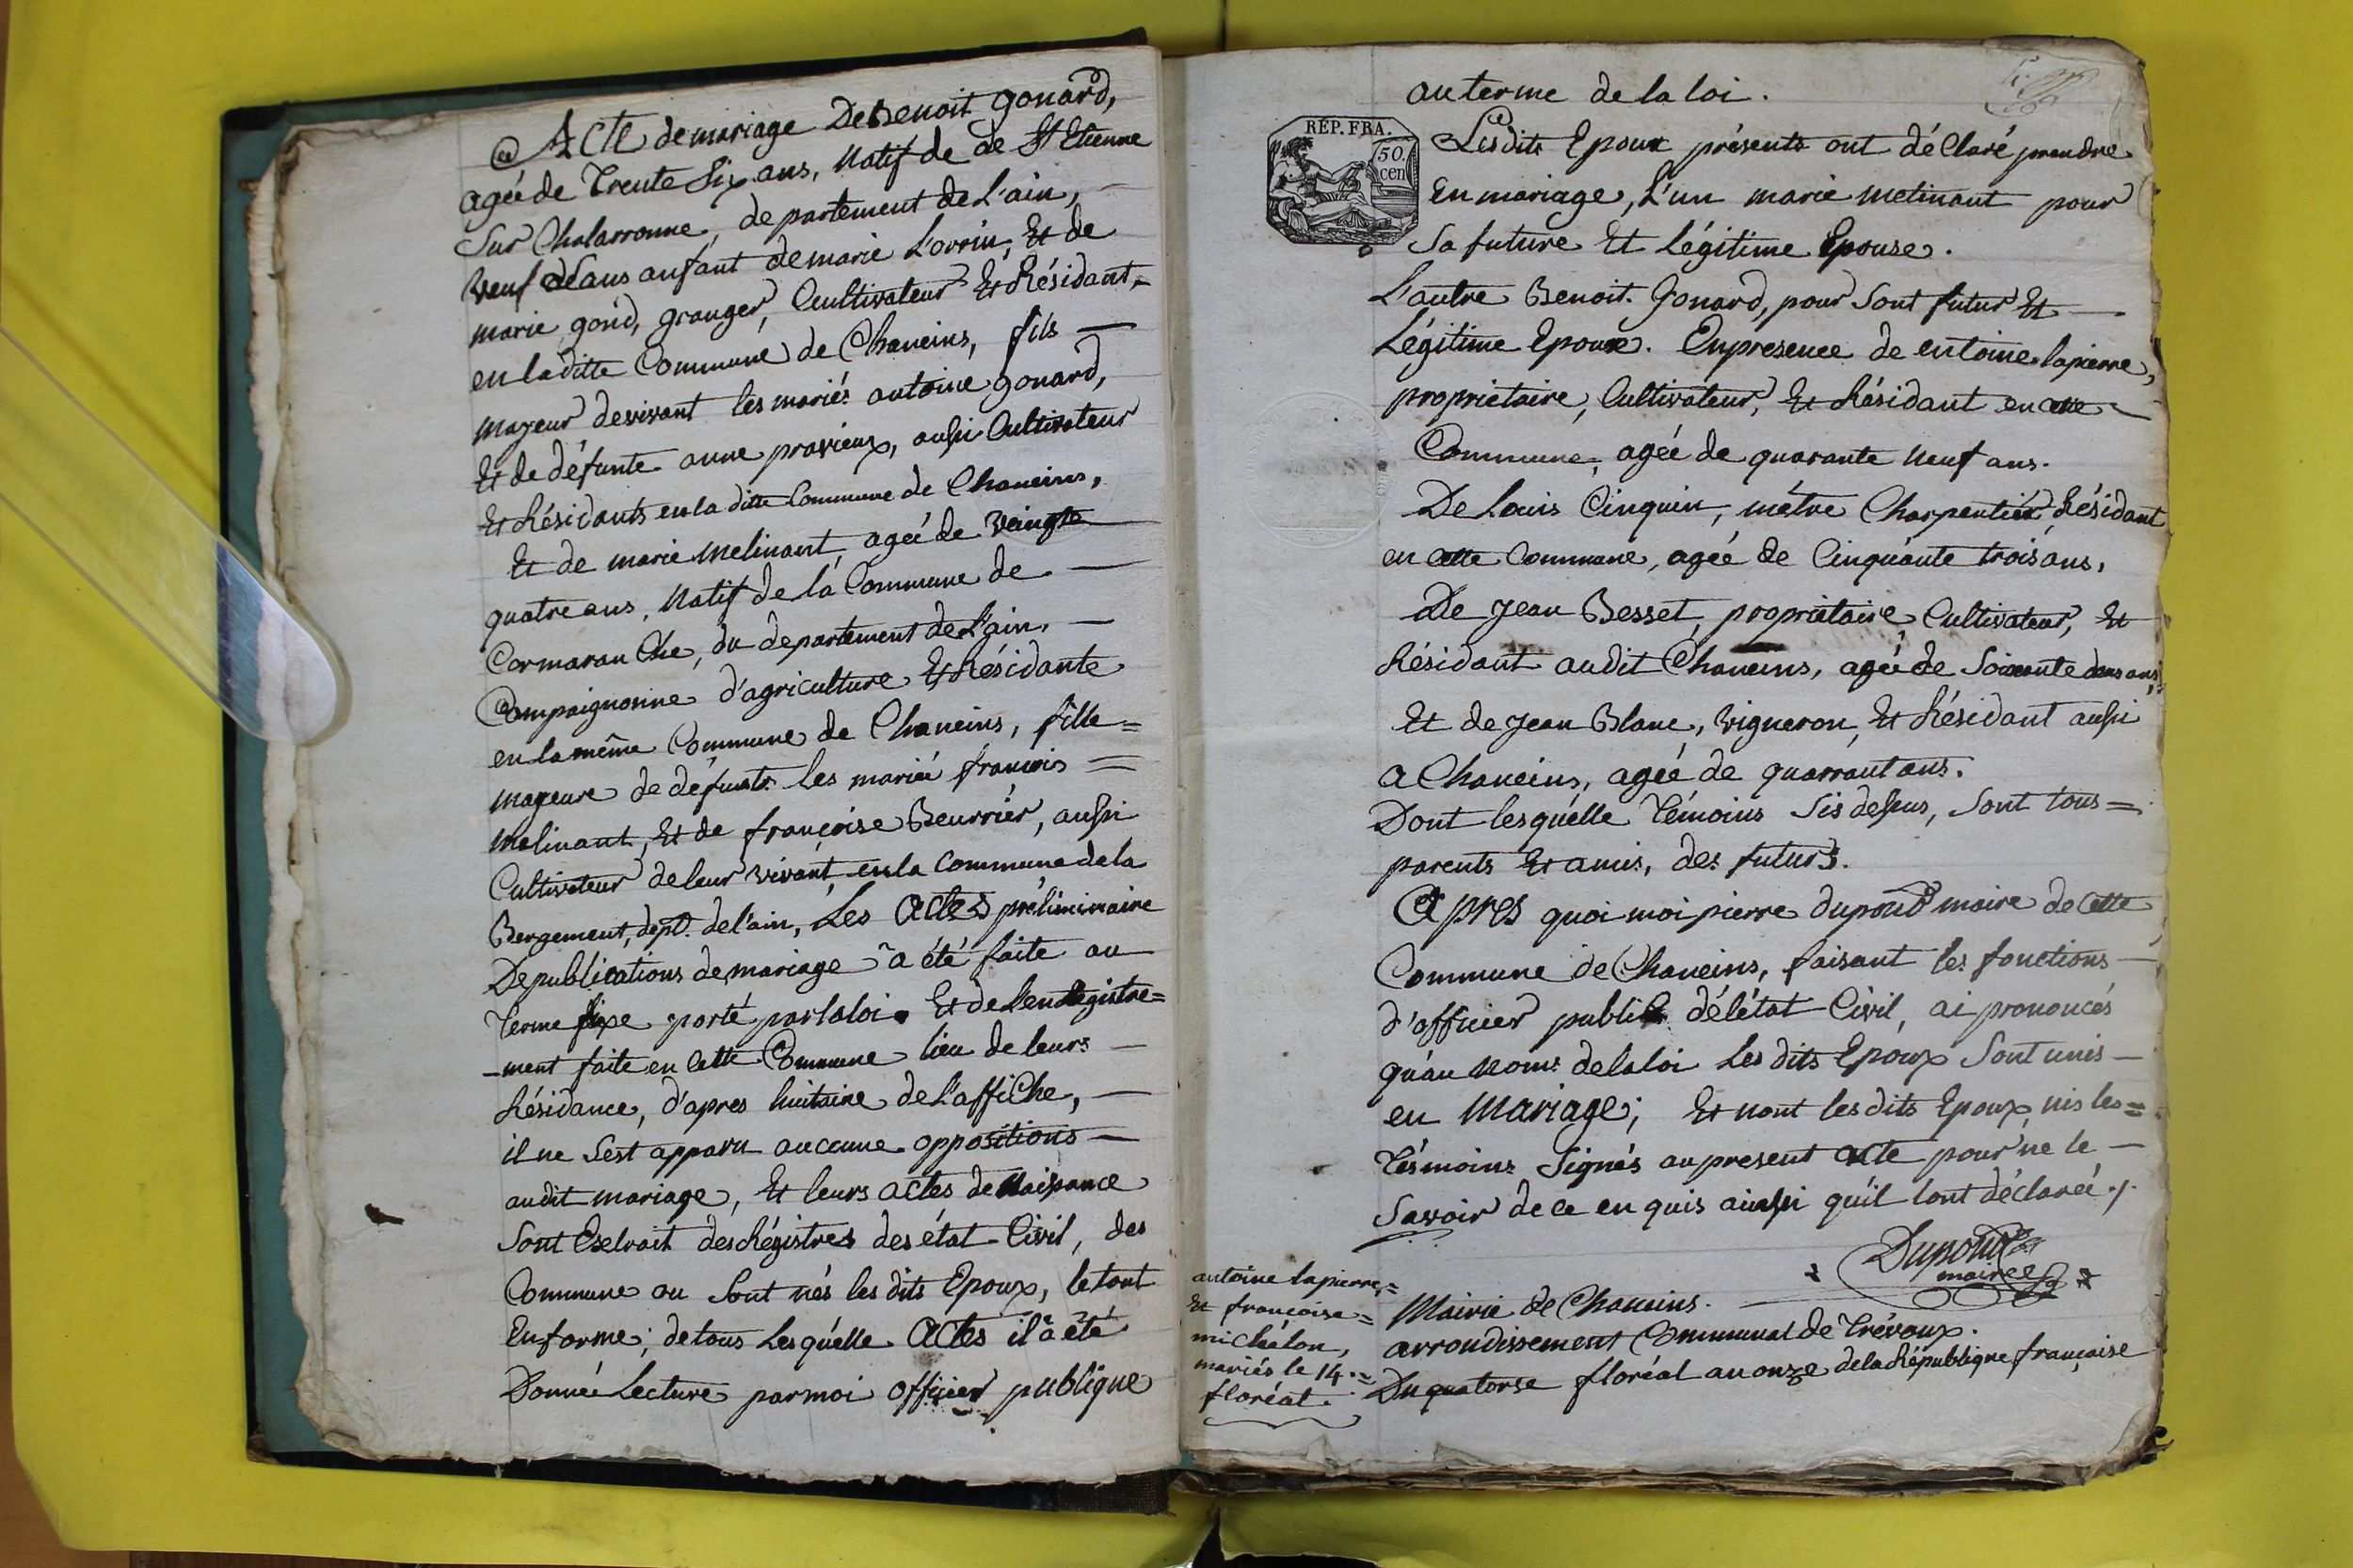 Acte de mariage De Benoit gonard,
agée de Trente Six ans, Natif de de St Etienne
Sur Chalaronne, departement de L'ain,
Veuf Sans anfant de marie Lorrin, Et de
marie gond, granger, Cultivateur Et Résidant
en laditte Commune de Chaneins, fils
mageur devivant les mariés antoine gonard,
Et de défunte anne pravieux, aussi Cultivateur
Et Résidants en la ditte Commune de Chaneins,
Et de marie melinant agée de Veingte
quatre ans, Natif de la Commune de
Cormaran Che, du departement de L'ain,
Compaignonne d'agriculture Et Résidante
en la même Commune de Chaneins, fille =
mageure de défunts les mariée francois =
melinant, Et de françoise Beurrier, aussi
Cultivateur de leur vivant en la Commune de la
Bergement, dept. de l'ain, Les Actes préliminaire
De publications de mariage à été faite au
Terme fixe porté par la loi. Et de L'enregistre=
-ment faite en Cette Commune lieu de leurs
Résidance, d'apres huitaine de L'affiChe,
il ne Sest apparu aucunne oppositions
audit mariage, Et leurs actes de Naissance
Sont Extrait des Régistres des état Civil, des
Commune ou Sont nés les dits Epoux, le tout
En forme; de tous Les quélle Actes il à été
Donnée Lecture par moi officier publique
au terme de la loi.
REP. FRA.
50.
cen
Lesdits Epoux présents ont déClaré prendre
En mariage, L'un marie melinant pour
Sa future Et Légitime Epouse.
L'autre Benoit Gonard, pour Sont futur Et
Légitime Epoux. En presence de entoine lapierre,
propriétaire, Cultivateur, Et Résidant en cette
Commune, agée de quarante Neuf ans.
De Louis Cinquin, métre Charpentier, Résidant
en cette Commune, agée de Cinquante trois ans,
De Jean Besset, propriétaire Cultivateur, Et
Résidant audit Chaneins, agée de Soixante deux ans,
Et de Jean Blanc, vigneron, Et Résidant aussi
a Chaneins, agée de quarrant ans.
Dont lesquélle Témoins Sis dessus, Sont tous =
parents Et amis, des futurs.
Apres quoi moi pierre dupond maire de Cette
Commune de Chaneins, faisant les fonctions
d'officier public délétat Civil, ai prononcés
qu'au Nom de la loi Les dits Epoux Sont unis
en Mariage; Et nont les dits Epoux nis les =
Tésmoins Signés au present acte pour ne le
Savoir de ce en quis ainssi qu'il lont déClarée./.
Dupond
maire
antoine lapierre, =
Et françoise =
michélon,
mariés le 14. =
floréal.
Mairie de Chaneins.
arrondissement Communal de Trévoux.
Du quatorse floréal an onze de la République française